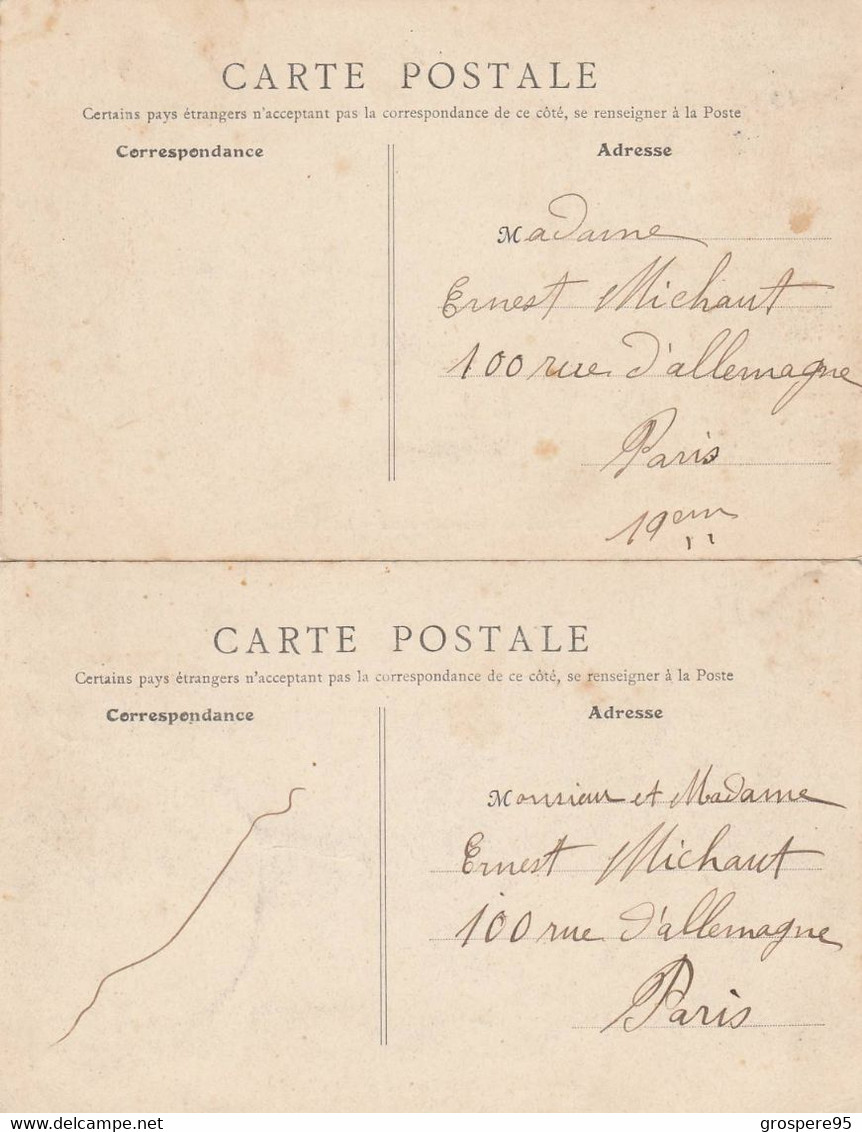 CARTE POSTALE
Certains pays étrangers n'acceptant pas la correspondance de ce côté, se renseigner à la Poste
Correspondance
Adresse
Madame
Ernest Michaut
100 rue d'allemagne
Paris
19em
CARTE POSTALE
Certains pays étrangers n'acceptant pas la correspondance de ce côté, se renseigner à la Poste
Correspondance
Adresse
Monsieur et Madame
Ernest Michaut
100 rue d'allemagne
Paris
DELCAMPE.NET
grospere95